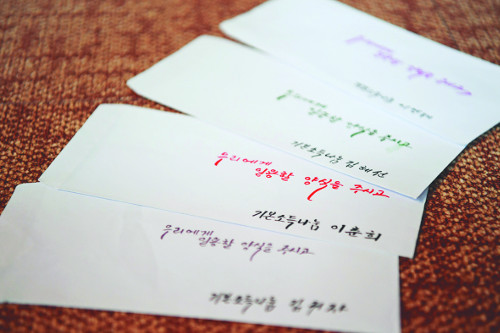 우리에게
일용할 양식을 주시고
기본소득나눔 김혜선
우리에게
일용할 양식을 주시고
기본소득나눔 이순희
우리에게
일용할 양식을 주시고
기본소득나눔 김